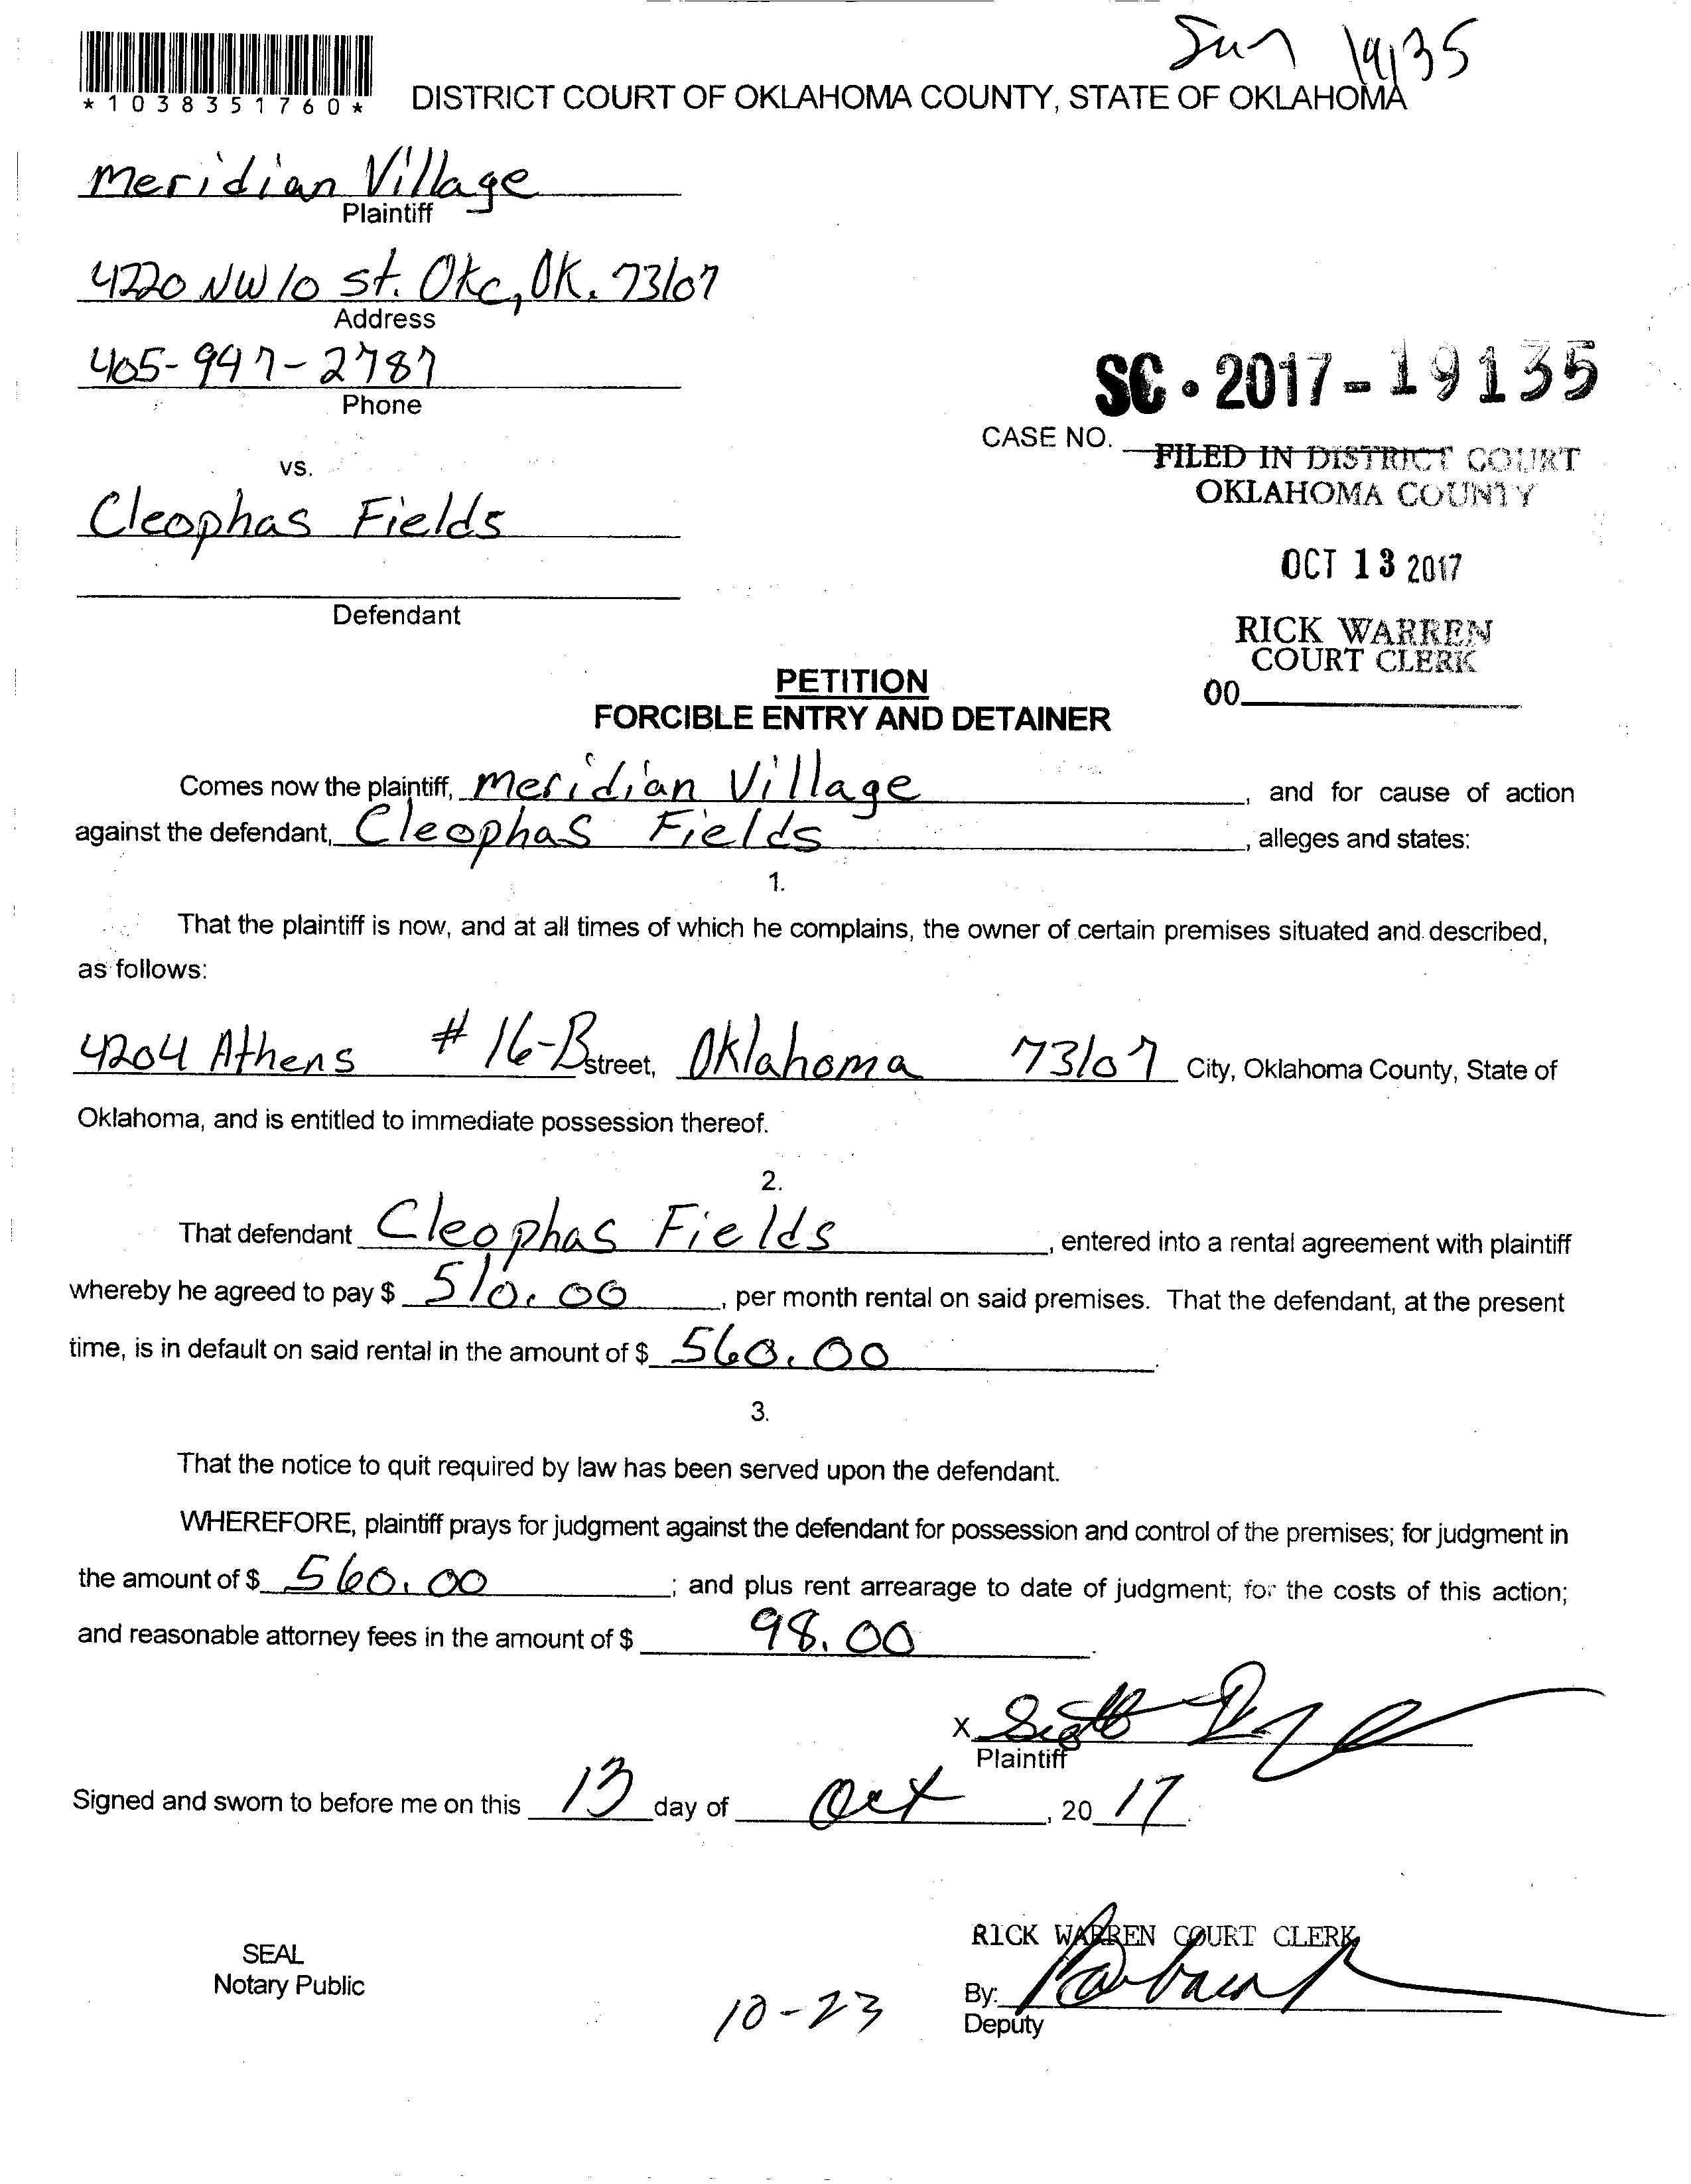 19135
*1038351760*
DISTRICT COURT OF OKLAHOMA COUNTY, STATE OF OKLAHOMA
Meridian Village
Plaintiff
4220 NW 10 St. Okc, OK. 73107
Address
405-947-2787
Phone
SC-2017-19135
CASE NO.
FILED IN DISTRICT COURT
OKLAHOMA COUNTY
vs.
Cleophas Fields
OCT 13 2017
Defendant
RICK WARREN
COURT CLERK
00
PETITION
FORCIBLE ENTRY AND DETAINER
Comes now the plaintiff, Meridian Village, and for cause of action
against the defendant, Cleophas Fields, alleges and states:
1.
That the plaintiff is now, and at all times of which he complains, the owner of certain premises situated and described,
as follows:
4204 Athens #16-B street, Oklahoma 73107 City, Oklahoma County, State of
Oklahoma, and is entitled to immediate possession thereof.
2.
That defendant Cleophas Fields, entered into a rental agreement with plaintiff
whereby he agreed to pay $ 510.00, per month rental on said premises. That the defendant, at the present
time, is in default on said rental in the amount of $ 560.00.
3.
That the notice to quit required by law has been served upon the defendant.
WHEREFORE, plaintiff prays for judgment against the defendant for possession and control of the premises; for judgment in
the amount of $ 560.00; and plus rent arrearage to date of judgment; for the costs of this action;
and reasonable attorney fees in the amount of $ 98.00.
X
Plaintiff
Signed and sworn to before me on this 13 day of Oct, 20 17.
RICK WARREN COURT CLERK
SEAL
Notary Public
By:
Deputy
10-23